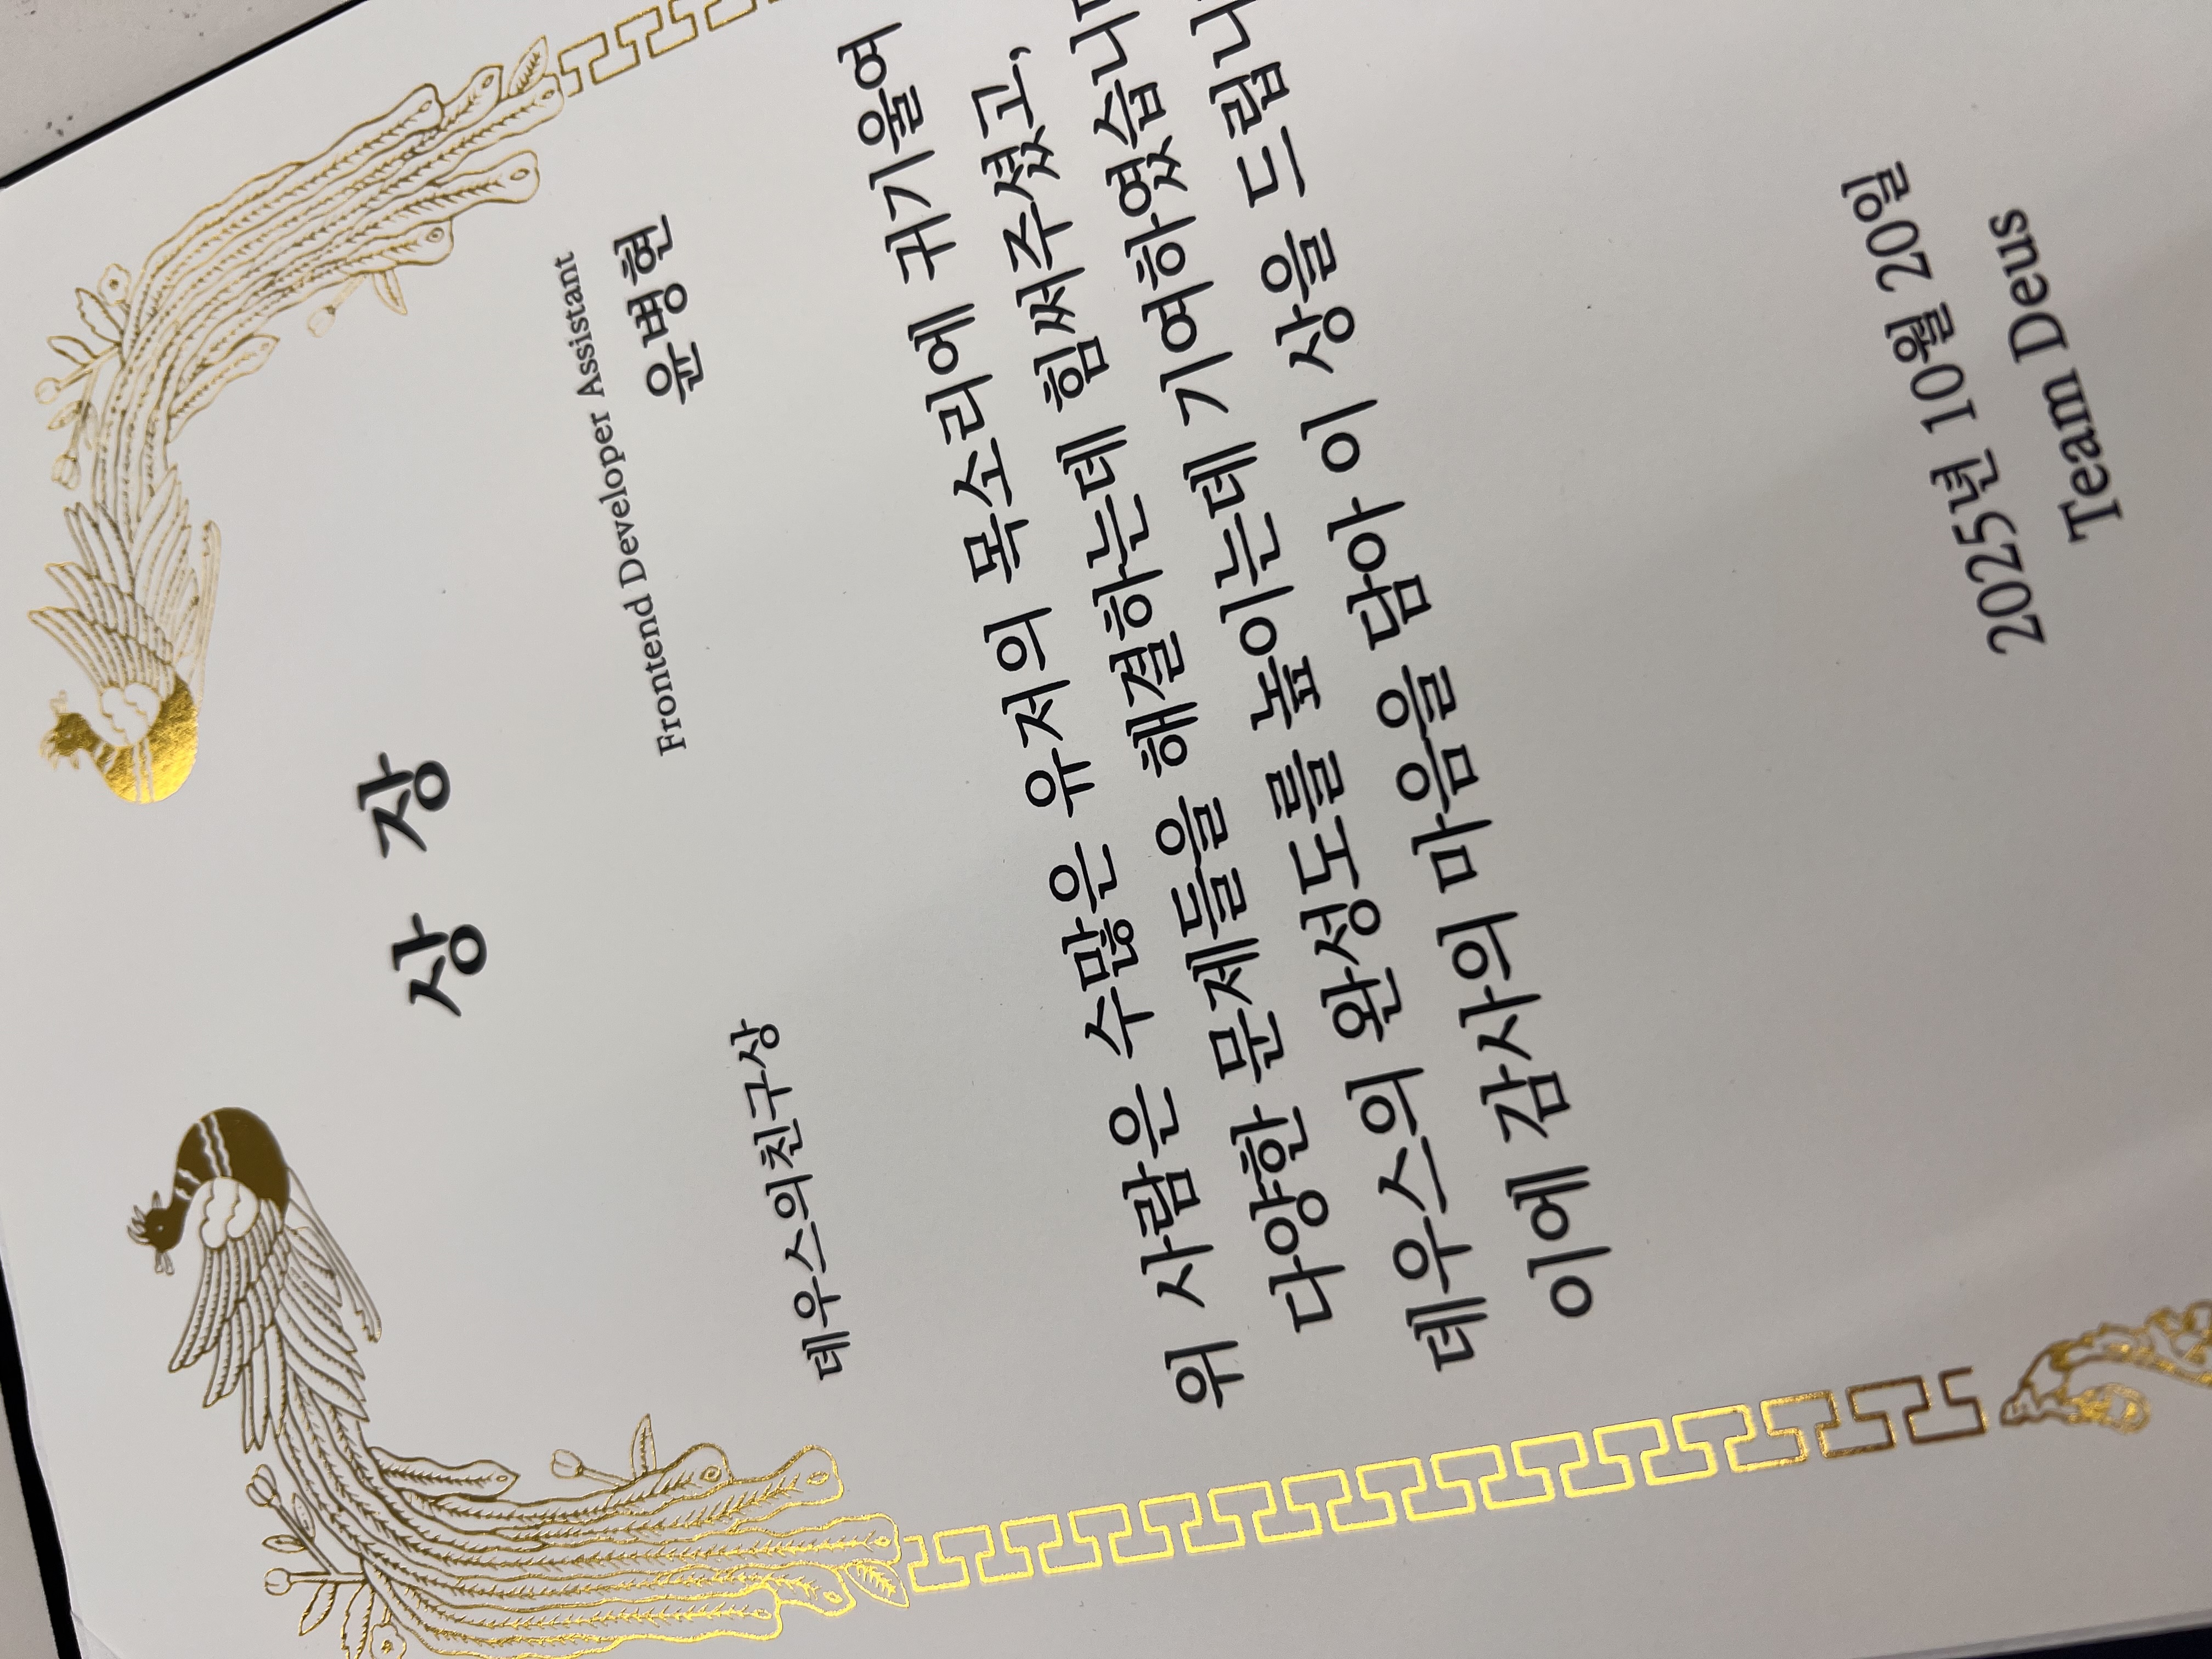 상 장
Frontend Developer Assistant
데우스의친구상
윤병현
위 사람은 수많은 유저의 목소리에 귀기울여
다양한 문제들을 해결하는데 힘써주셨고,
데우스의 완성도를 높이는데 기여하였습니
이에 감사의 마음을 담아 이 상을 드립니
2025년 10월 20일
Team Deus